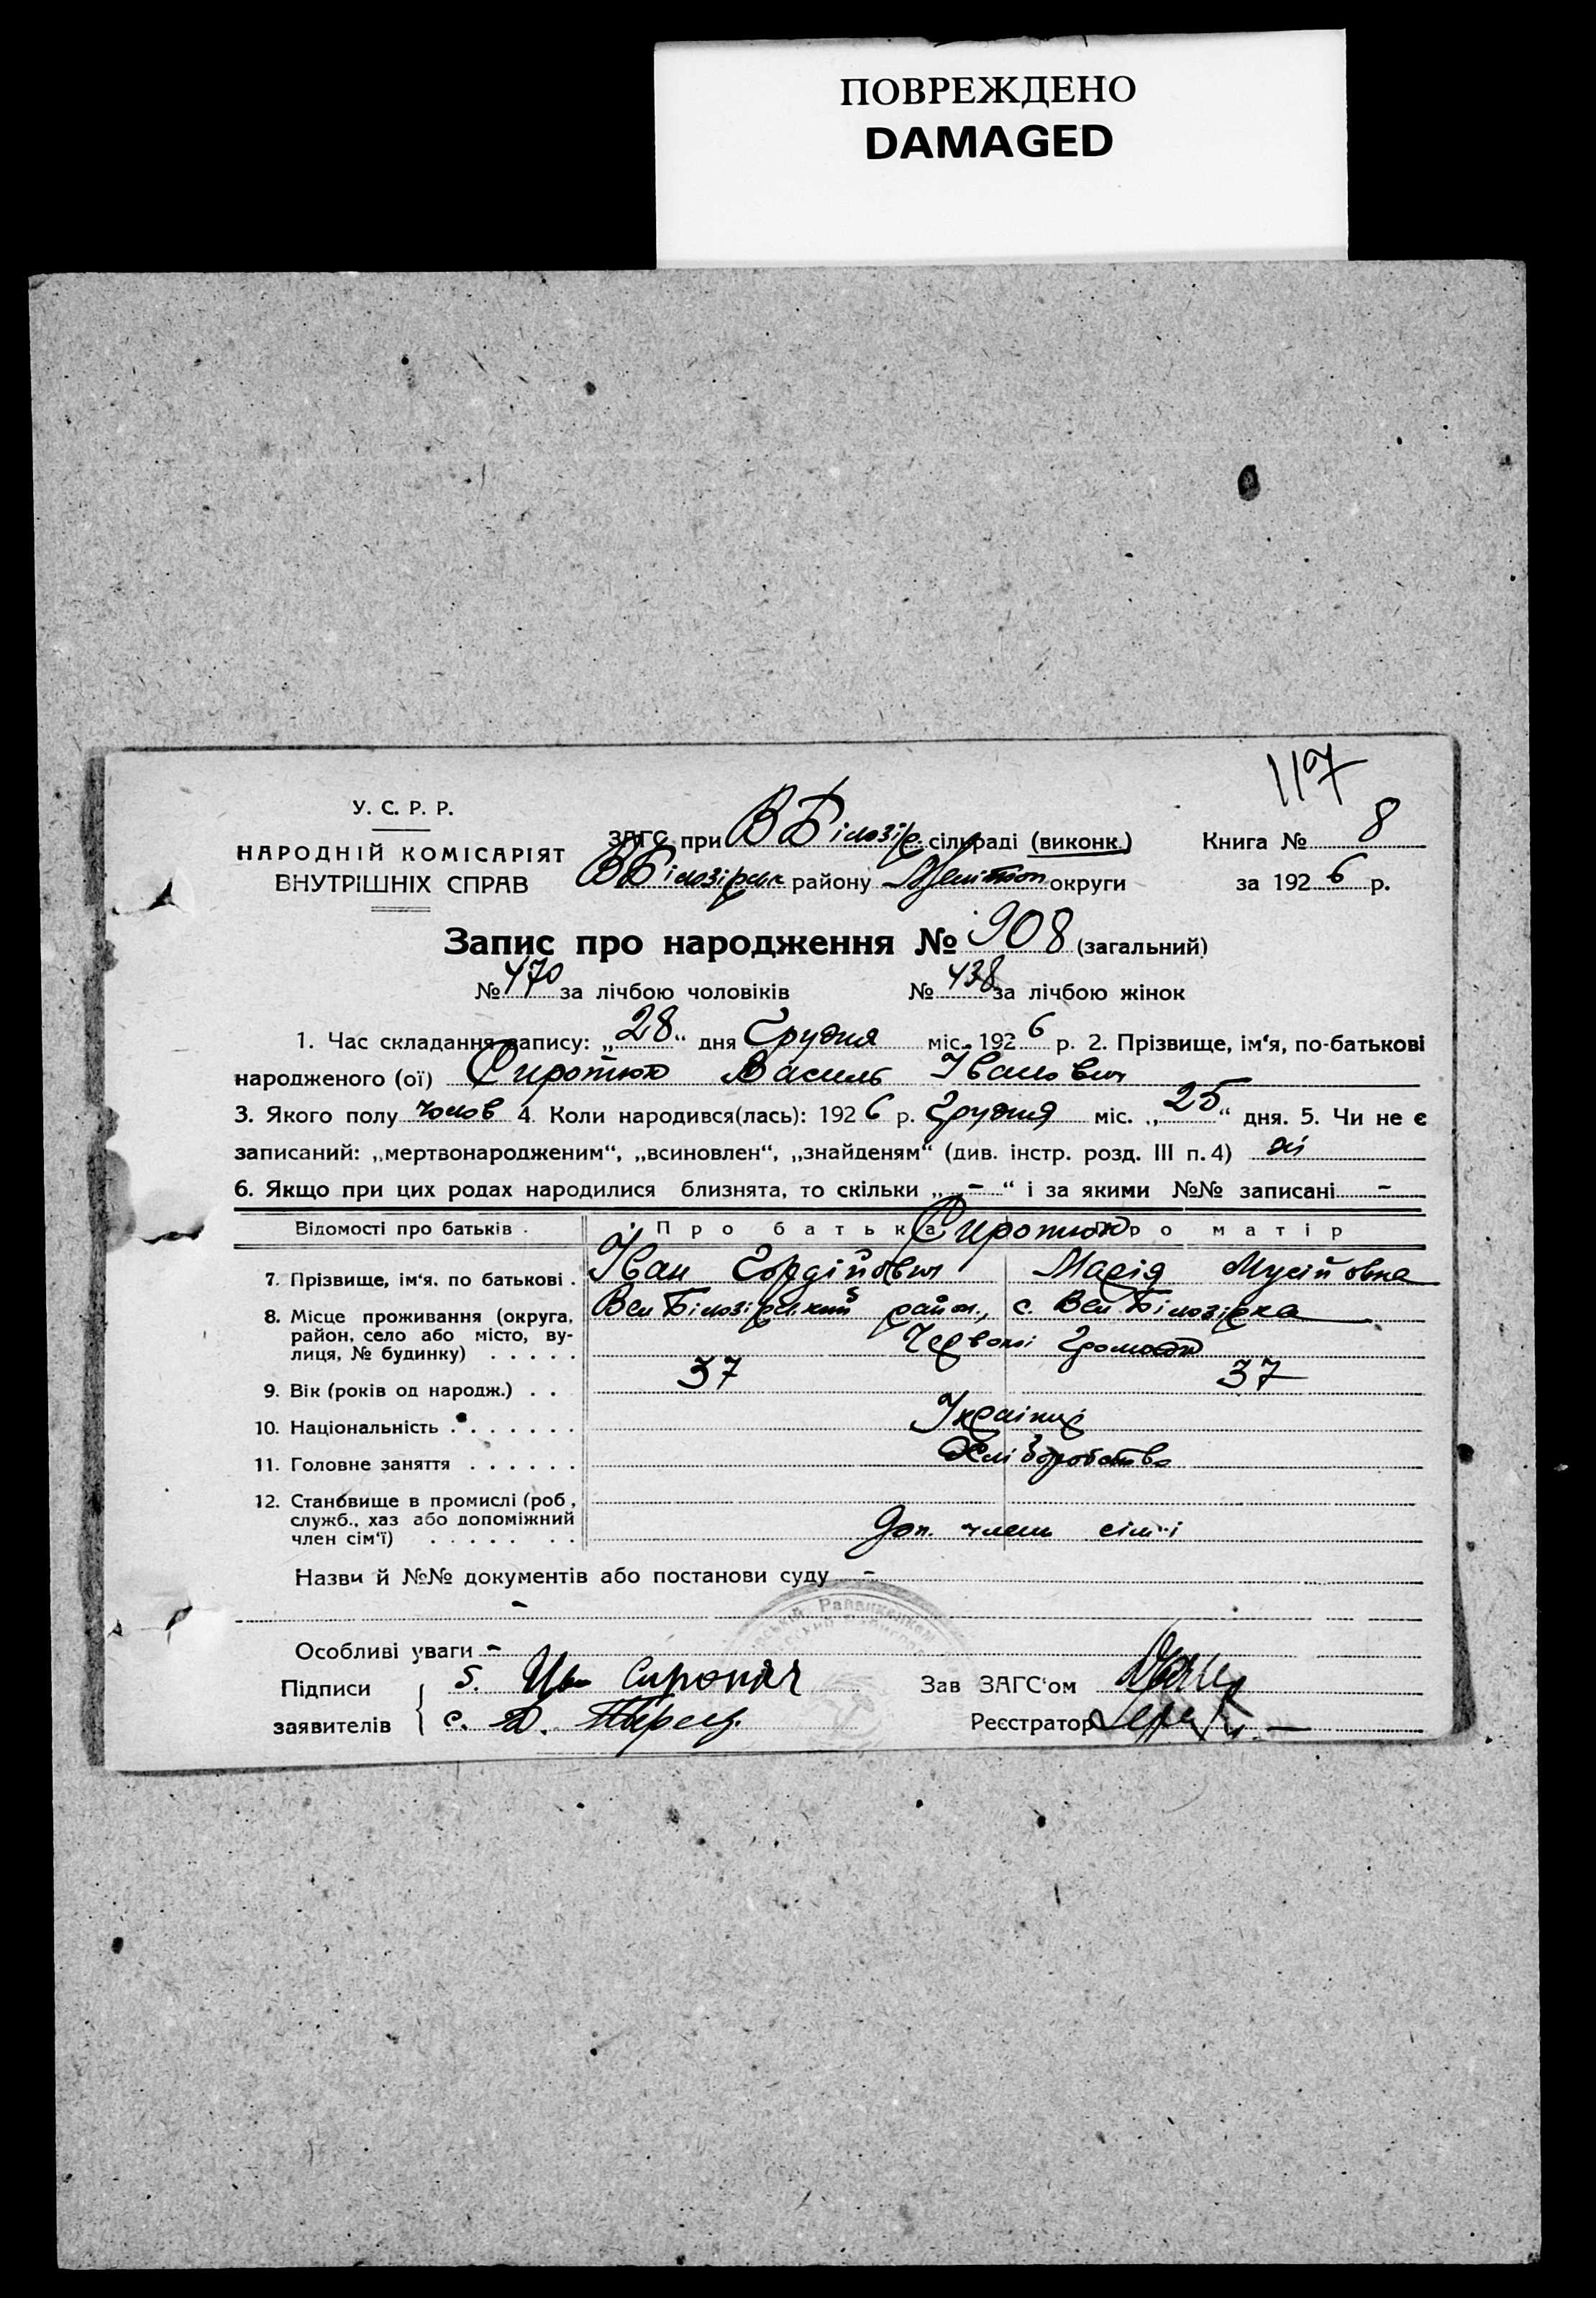 ПОВРЕЖДЕНО
DAMAGED
117
У. С. Р. Р.
НАРОДНІЙ КОМІСАРІЯТ
ВНУТРІШНІХ СПРАВ
ЗАГС при В Білозір. сільраді (виконк.)
В Білозірськ району Меліттоп округи
Книга № 8
за 1926 р.
Запис про народження № 908 (загальний)
№ 470 за лічбою чоловіків № 438 за лічбою жінок
1. Час складання запису: „28“ дня Грудня міс. 1926 р. 2. Прізвище, ім‘я, по-батькові
народженого (ої) Сиротюк Василь Іванович
3. Якого полу чолов 4. Коли народився(лась): 1926 р. Грудня міс. „25“ дня. 5. Чи не є
записаний: „мертвонародженим“, „всиновлен“, „знайденям“ (див. інстр. розд. III п. 4) ні
6. Якщо при цих родах народилися близнята, то скільки „-“ і за якими №№ записані -
Відомості про батьків. Про батька Про матір
Сиротюк
7. Прізвище, ім‘я, по батькові . Іван Гордійович Марія Мусійовна
8. Місце проживання (округа, Вел Білозірський район., с. Вел. Білозірка
район, село або місто, ву- Червоні
лиця, № будинку) . . . . .
9. Вік (років од народж.) . . 37 37
10. Національність . . . . . . . Українці
11. Головне заняття . . . . . . Хліборобство
12. Становище в промислі (роб.,
служб., хаз або допоміжний
член сім‘ї) . . . . . . . Доп. член сім"ї
Назви й №№ документів або постанови суду -
-
Особливі уваги -
Підписи
заявителів
Б. Ив Сиротюк
с. Д.
Зав ЗАГС‘ом
Реєстратор